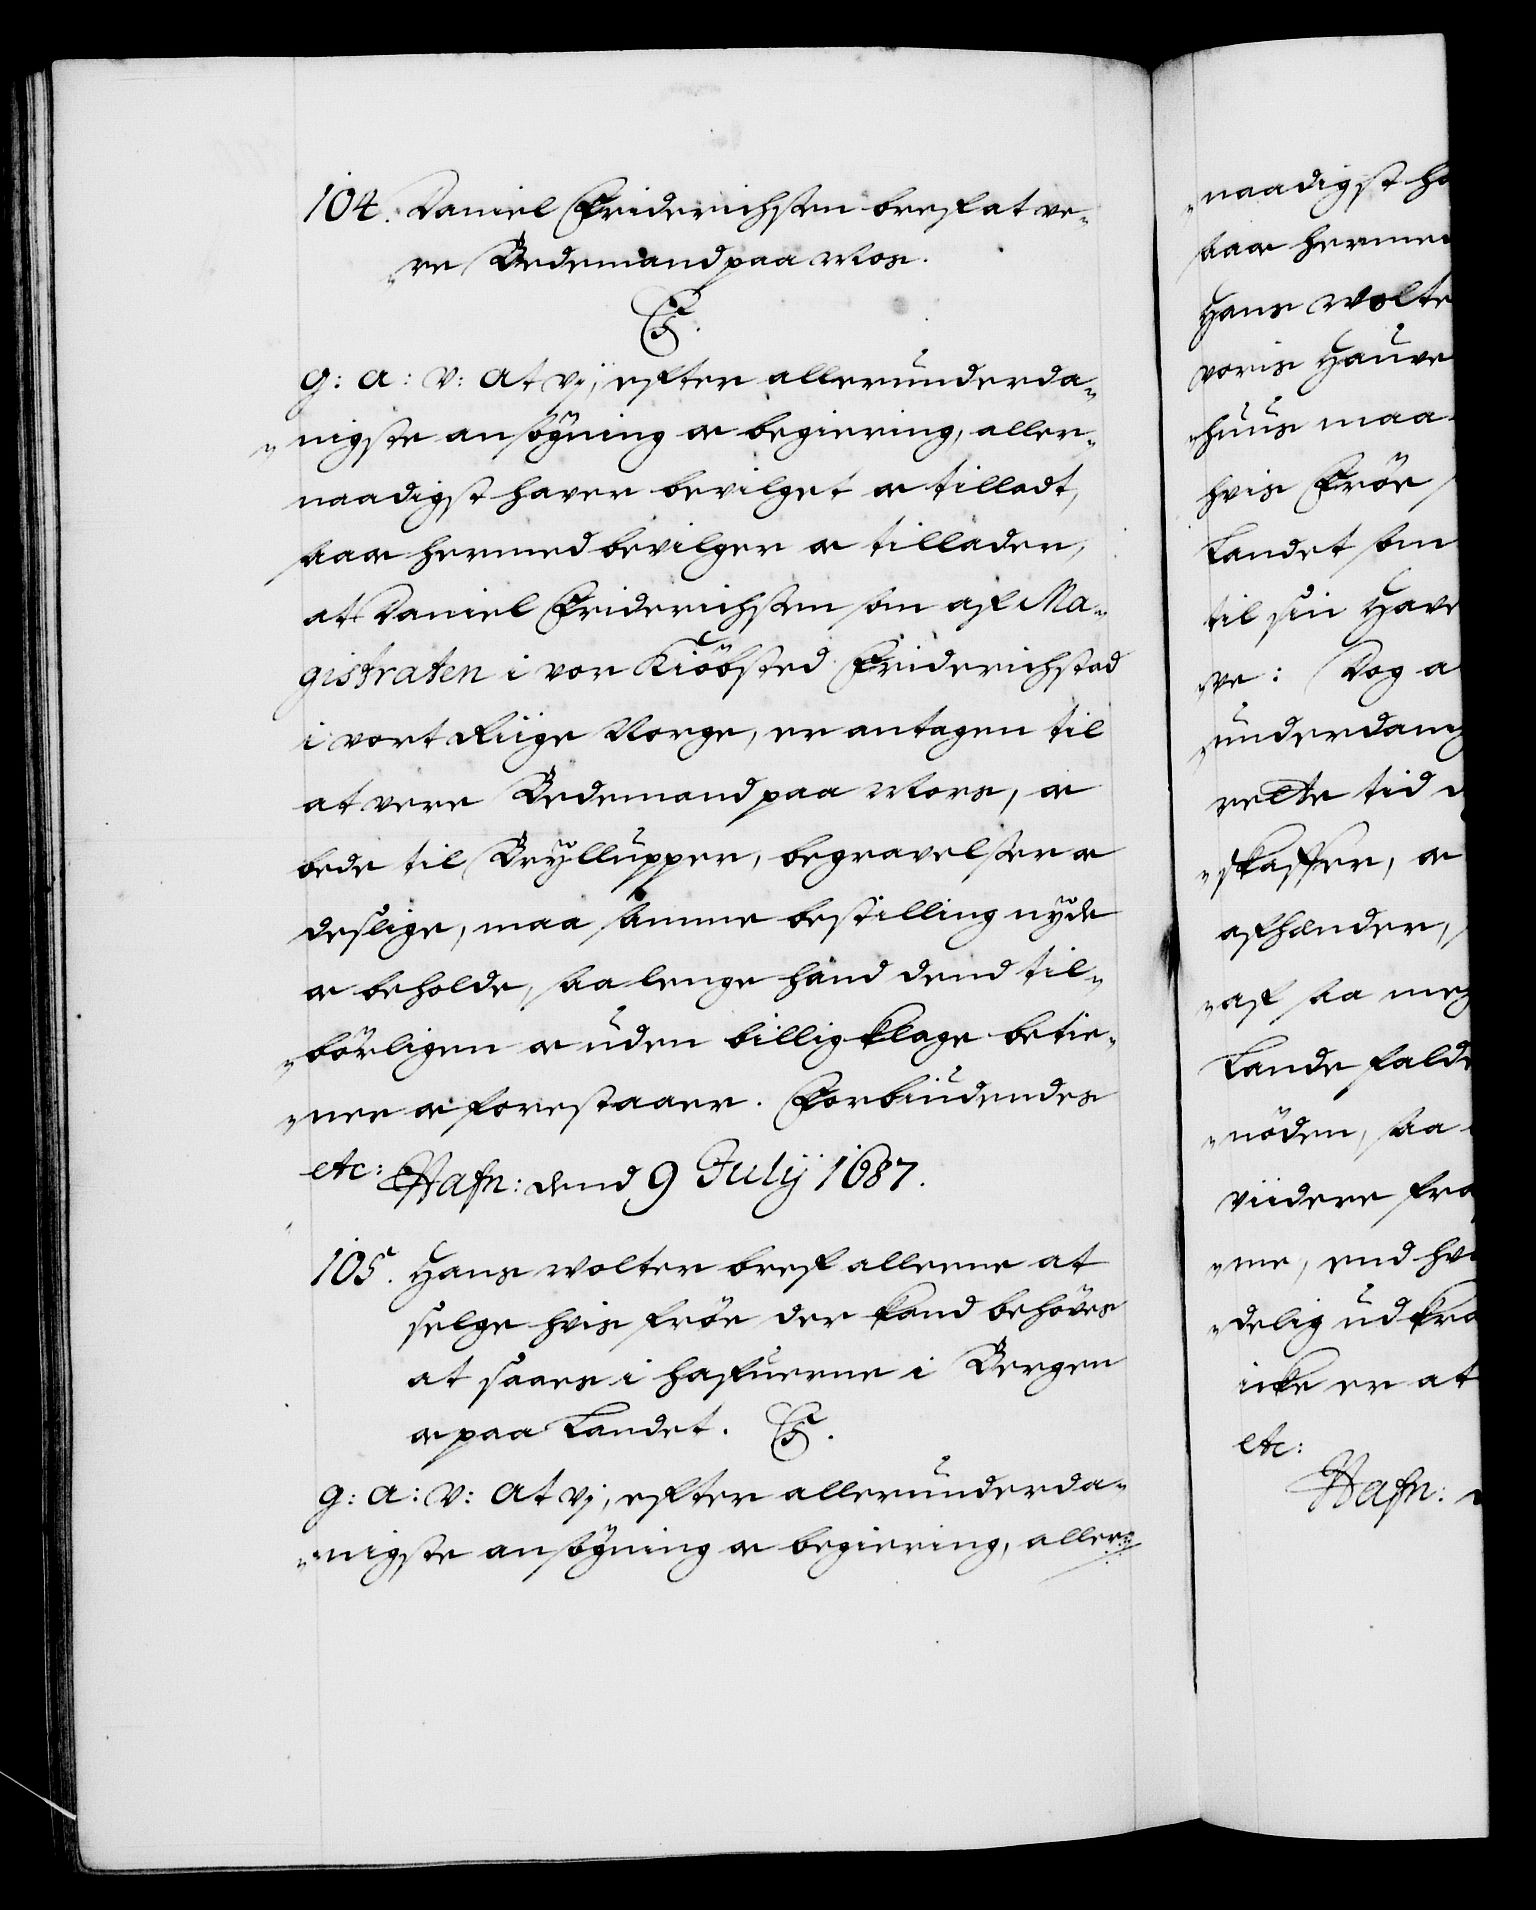 104. Daniel Friderichsen bref at ve-
re Bedemand paa Mos.
C5.
G: A: V: At vj, efter allerunderda-
nigste ansøgning oc begiering, aller-
naadigst hafver bevilget oc tilladt,
saa oc hermed bevilger oc tillader,
at Daniel Friderichsen som af Ma-
gistraten i vor Kiöbsted Friderichstad
i vort Riige Norge, er antagen til
at vere Bedemand paa Mors, oc
bede til Bryllupper, begravelser oc
deslige, maa samme bestilling nyde
oc beholde, saa lenge hand dend til-
börligen oc uden billig klage betie-
ner oc forestaaer. Forbiudendes
etc: Hafn: dend 9 Julij 1687.
105. Hans Wolter bref alleene at
selge hvis fröe der kand behöves
at saaes i hafuerne i Bergen
oc paa Landet. C5.
G: A: V: At vj, efter allerunderda-
nigste ansøgning oc begiering, aller-
naadigst ha
saa oc herme
Hans Wolte
voris Hauve
huus maa
hvis Fröe
Landet som
til sin Have
ve: Dog a
underdanig
rette tid
skaffer, oc
afhender,
af saa meg
Lande falde
nöden, saa
viidere fra
me, end hvi
delig udkra
icke er at
etc:
Hafn: